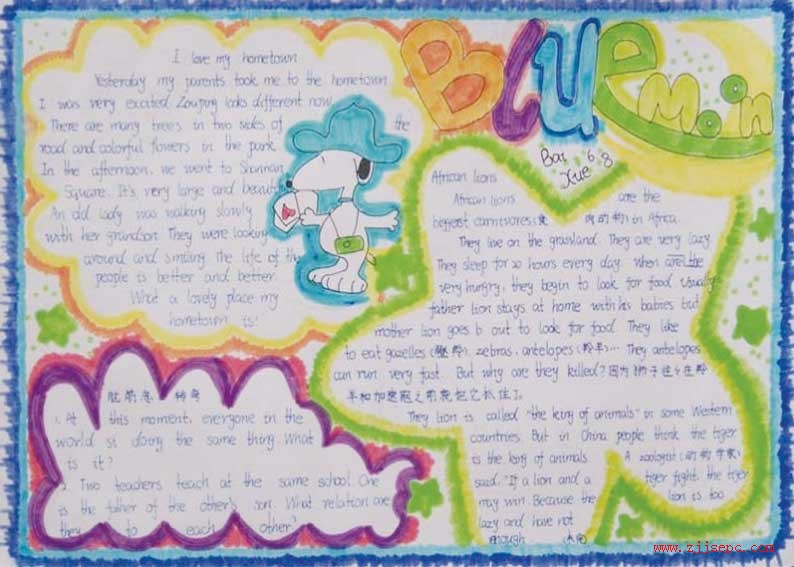 I love my hometown
Yesterday my parents took me to the hometown
I was very excited. Zouping looks different now.
There are many trees in two sides of the
road and colorful flowers in the park.
In the afternoon, we went to Shannan
Square. It's very large and beautif
An old lady was walking slowly
with her grandson. They were looking
around and smiling. the life of the
people is better and better.
What a lovely place my
hometown is!
脑筋急转弯
1. At this moment, everyone in the
world si doing the same thing. What
is it?
2. Two teachers teach at the same school. One
is the father of the other's son. What relation are
they to each other?
BLUE
Moon
Bai Xue 6.8
African lions
African lions are the
biggest carnivores (食肉动物) in Africa.
They live on the grassland. They are very lazy.
They sleep for 20 hours every day. When are the
very hungry, they begin to look for food. Usually
father lion stays at home with his babies but
mother lion goes b out to look for food. They like
to eat gazelles, zebras, antelopes (羚羊)... They antelopes
can run very fast. But why are they killed? 因为狮子往
They lion is called "the king of animals" in some Western
countries. But in China people think the tiger
is the king of animals. A zoologist (动物学家)
said: "If a lion and a tiger fight, the tiger
may win. Because the lion is too
lazy and have not
enough
www.zjjsepc.com